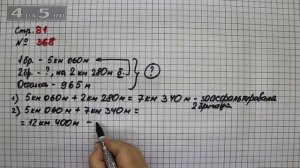 4 на 5.ru
Стр. 81
№ 368
1 бр. - 5 км 060 м
2 бр. - ?, на 2 км 280 м б.
?
Осталось - 965 м
1) 5 км 060 м + 2 км 280 м = 7 км 340 м - заасфальтировала
2 бригада
2) 5 км 060 м + 7 км 340 м =
= 12 км 400 м -